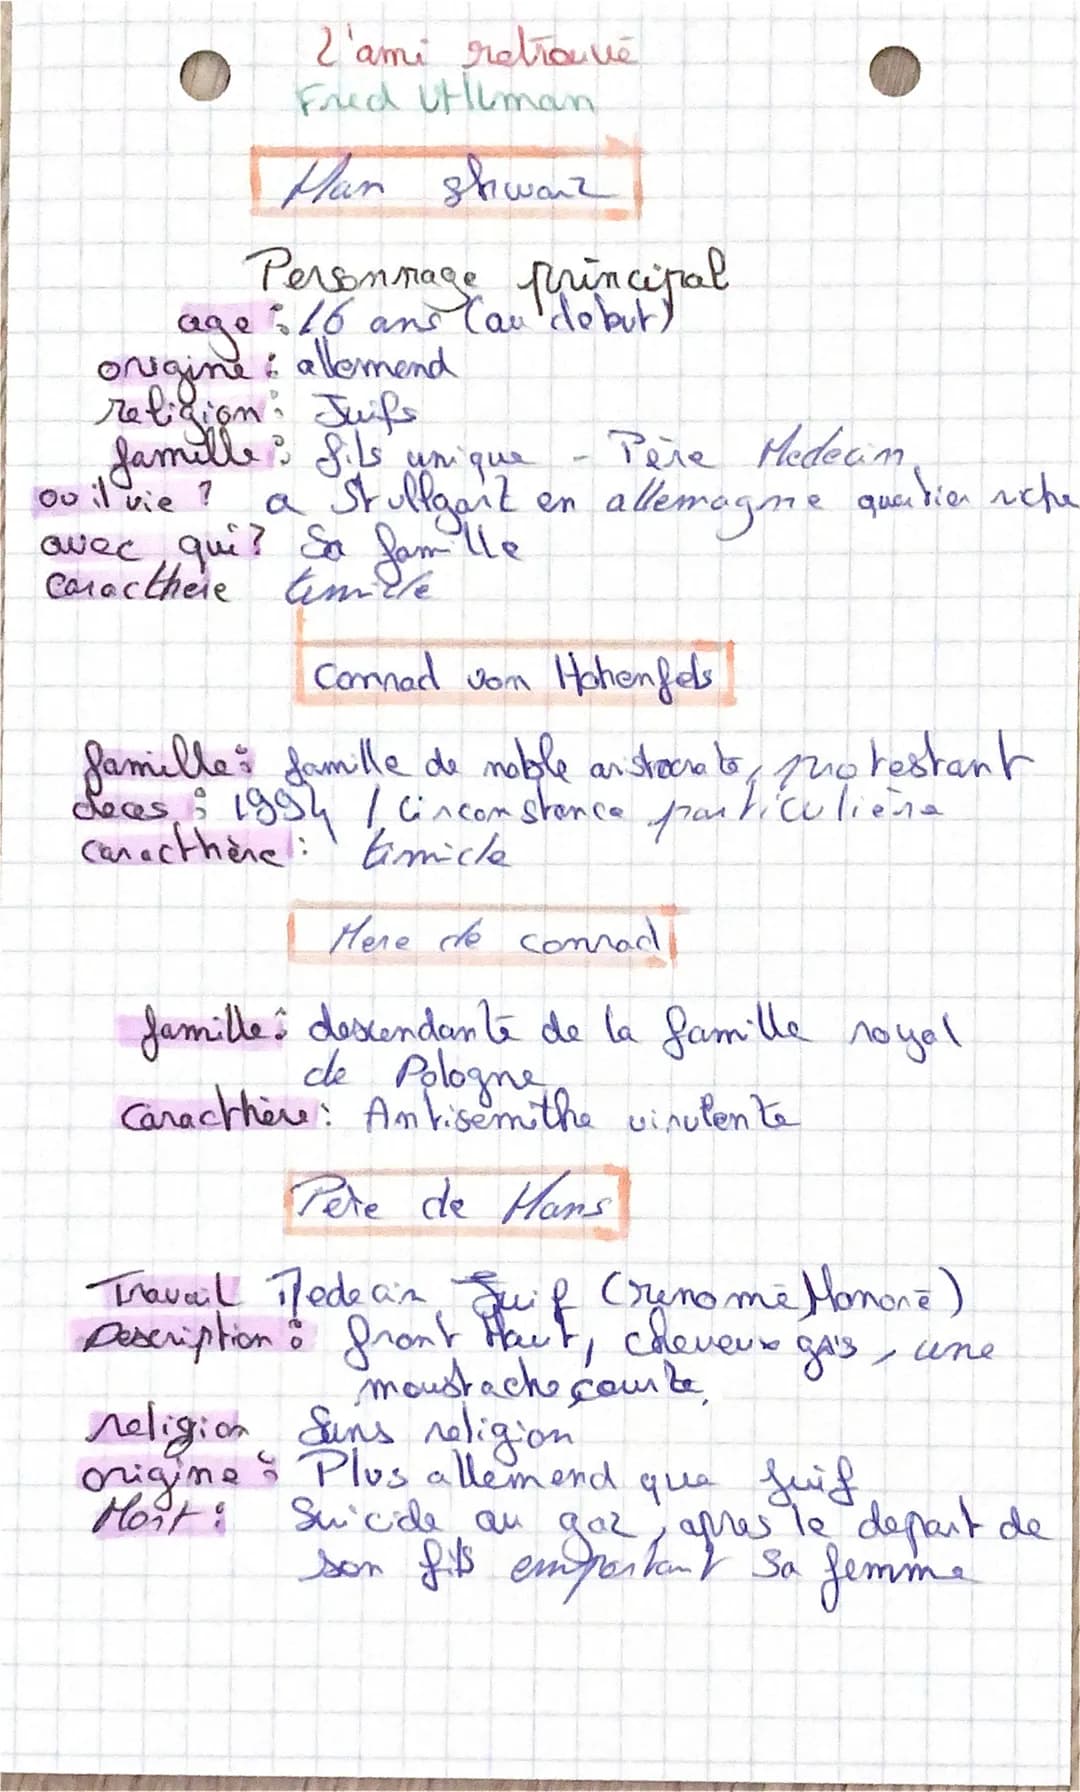 L'ami retrouvé
Fred Uhlman
Han shwarz
Personnage principal
age : 16 ans (au debut)
origine : allemend
religion : Juifs
famille : fils unique - Père Medecin
ou il vie ? a Stuttgart en allemagne quartier riche
avec qui ? Sa famille
caracthere timide
Conrad von Hohenfels
famille : famille de noble aristocrate, protestant
deces : 1994 / Circonstance particulière
caracthère : timide
Mere de conrad
famille : descendante de la famille royal
de Pologne
Caracthère : Antisemithe virulente
Père de Hans
Travail Medecin Juif (renomé Honoré)
Description : front Haut, cheveux gris, une
moustache courte,
religion Sans religion
origine : Plus allemend que juif
Mort : Suicide au gaz, apres le depart de
son fils emportant sa femme